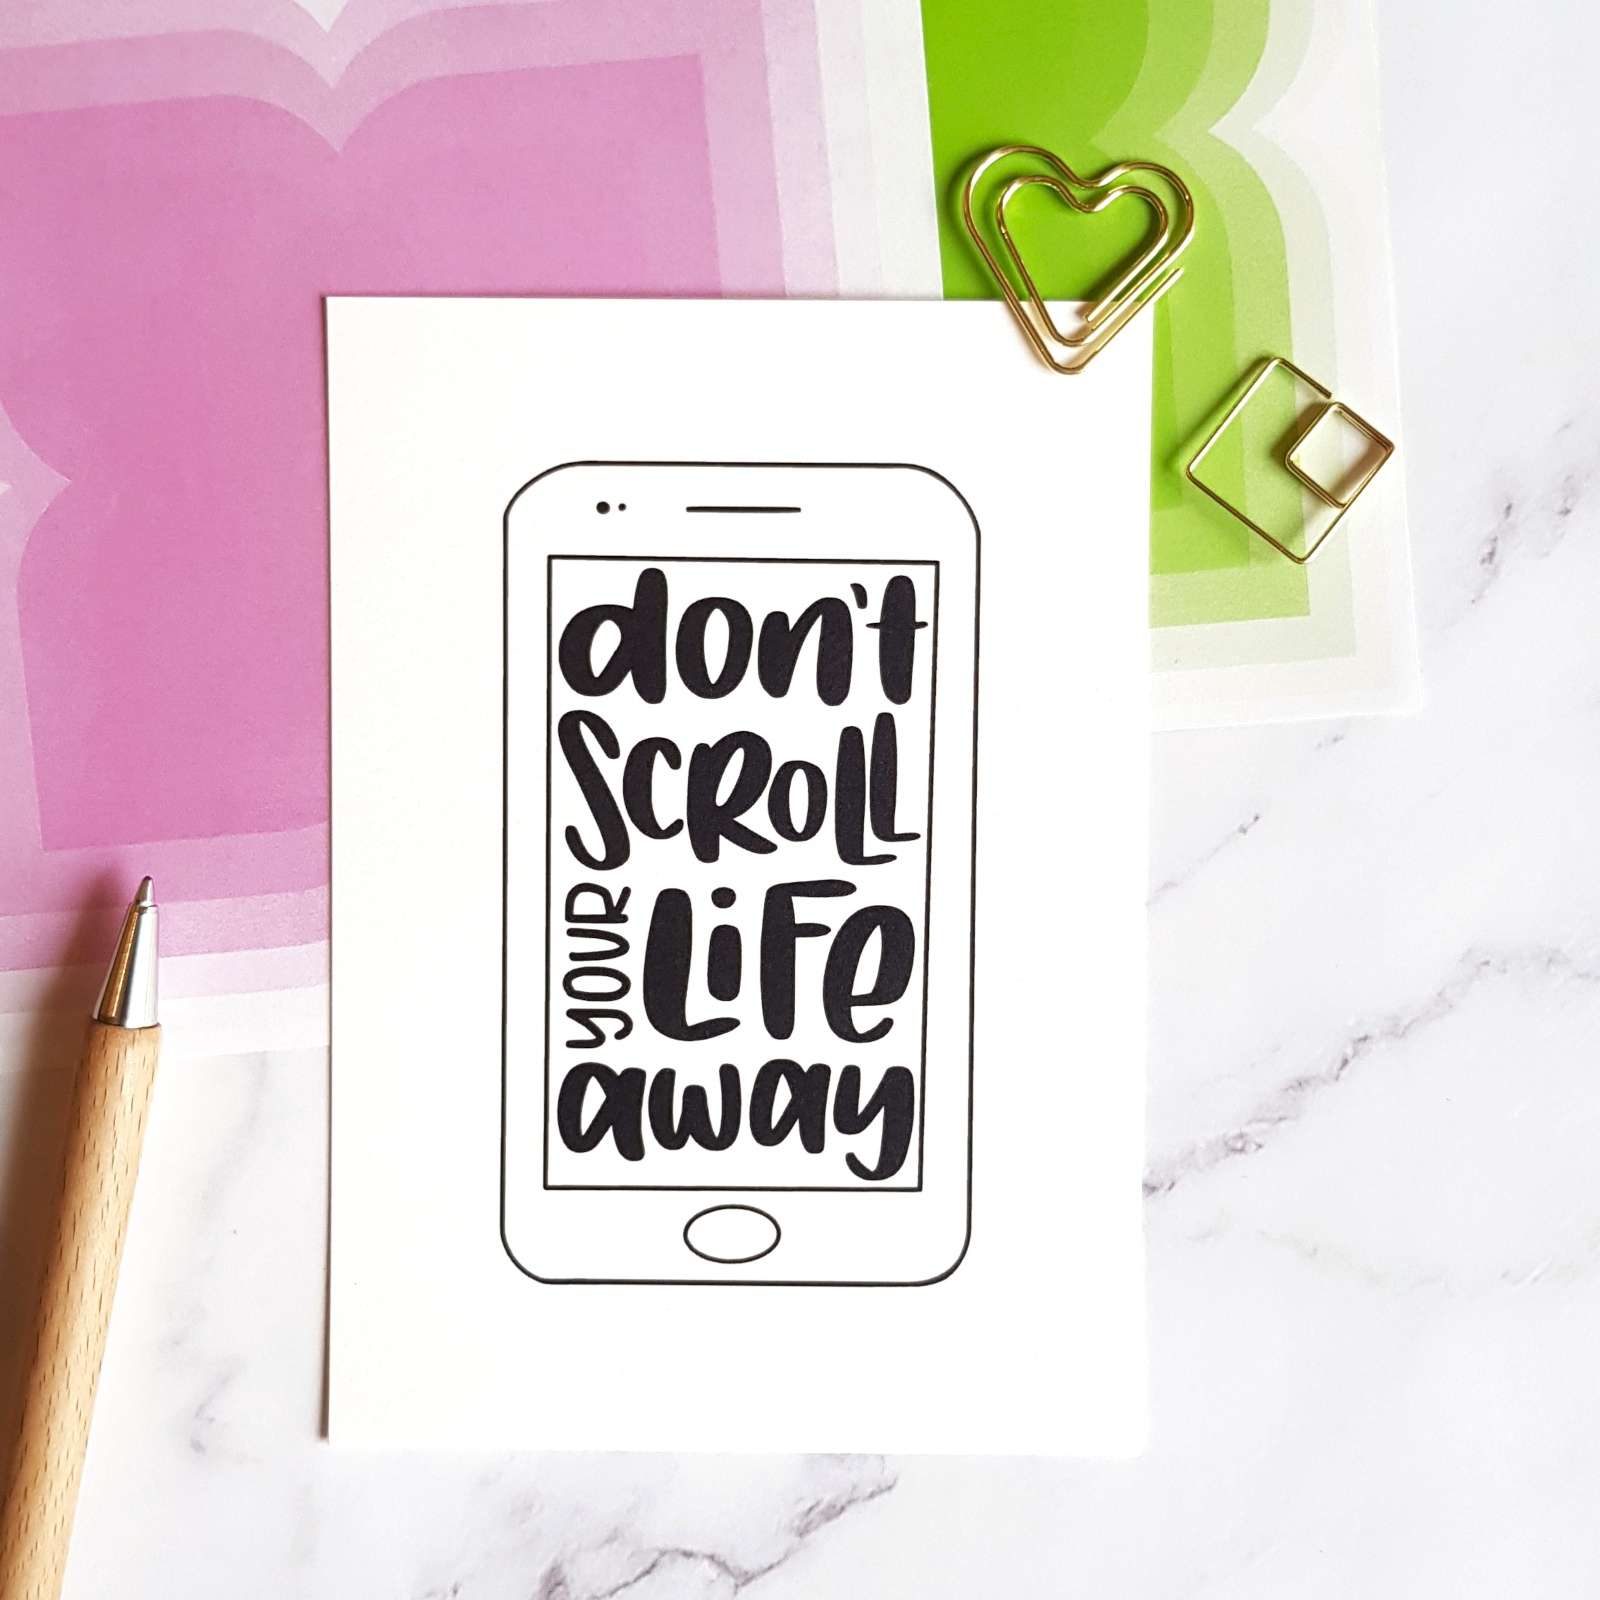 don't
SCROLL
YOUR LiFe
away